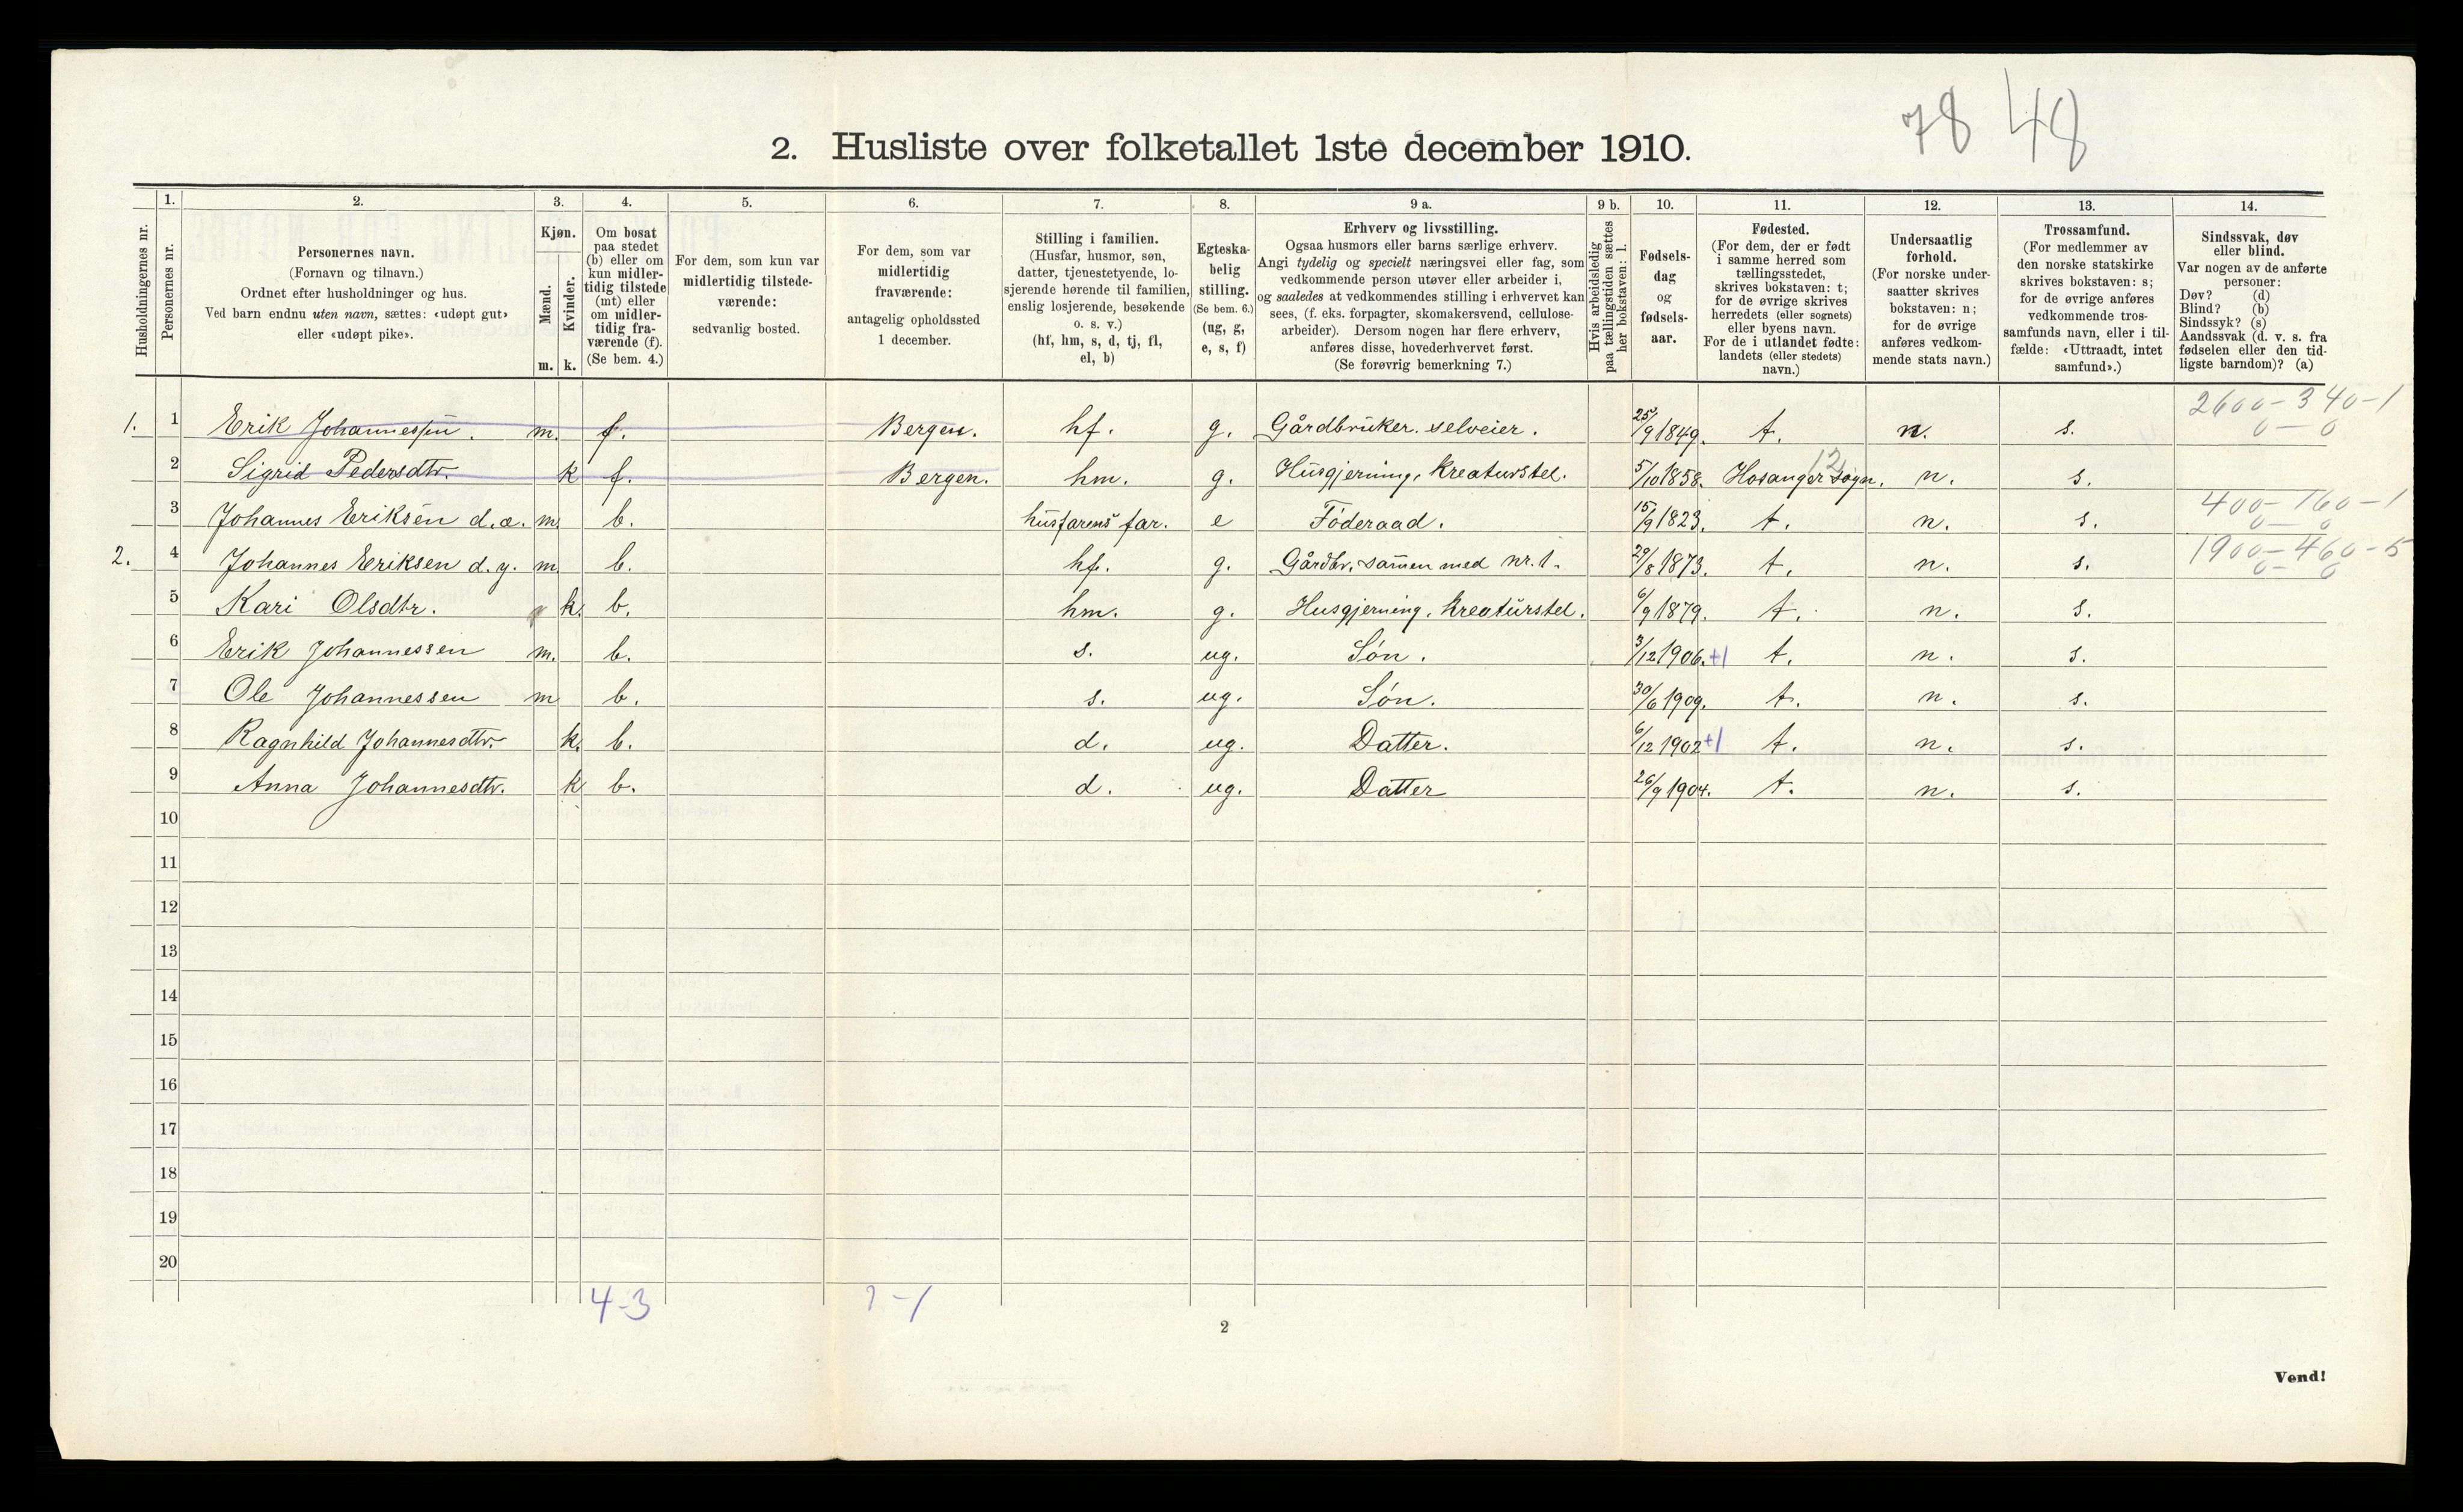 78 48
2. Husliste over folketallet 1ste december 1910.
Husholdningernes nr.
1. Personernes nr.
2. Personernes navn. (Fornavn og tilnavn.) Ordnet efter husholdninger og hus. Ved barn endnu uten navn, sættes: «udøpt gut» eller «udøpt pike».
3. Kjøn. Mænd. m. Kvinder. k.
4. Om bosat paa stedet (b) eller om kun midlertidig tilstede (mt) eller om midlertidig fraværende (f). (Se bem. 4.)
5. For dem, som kun var midlertidig tilstedeværende: sedvanlig bosted.
6. For dem, som var midlertidig fraværende: antagelig opholdssted 1 december.
7. Stilling i familien. (Husfar, husmor, søn, datter, tjenestetyende, losjerende hørende til familien, enslig losjerende, besøkende o. s. v.) (hf, hm, s, d, tj, fl, el, b)
8. Egteskabelig stilling. (Se bem. 6.) (ug, g, e, s, f)
9 a. Erhverv og livsstilling. Ogsaa husmors eller barns særlige erhverv. Angi tydelig og specielt næringsvei eller fag, som vedkommende person utøver eller arbeider i, og saaledes at vedkommendes stilling i erhvervet kan sees, (f. eks. forpagter, skomakersvend, cellulosearbeider). Dersom nogen har flere erhverv, anføres disse, hovederhvervet først. (Se forøvrig bemerkning 7.)
9 b. Hvis arbeidsledig paa tællingstiden sættes her bokstaven: l.
10. Fødselsdag og fødselsaar.
11. Fødested. (For dem, der er født i samme herred som tællingsstedet, skrives bokstaven: t; for de øvrige skrives herredets (eller sognets) eller byens navn. For de i utlandet fødte: landets (eller stedets) navn.)
12. Undersaatlig forhold. (For norske undersaatter skrives bokstaven: n; for de øvrige anføres vedkommende stats navn.)
13. Trossamfund. (For medlemmer av den norske statskirke skrives bokstaven: s; for de øvrige anføres vedkommende trossamfunds navn, eller i tilfælde: «Uttraadt, intet samfund».)
14. Sindssvak, døv eller blind. Var nogen av de anførte personer: Døv? (d) Blind? (b) Sindssyk? (s) Aandssvak (d. v. s. fra fødselen eller den tidligste barndom)? (a)
1. 1 Erik Johannessen. m. f. Bergen. hf. g. Gårdbruker. selveier. 25/9 1849. t. n. s. 2600-340-1 0-0
2 Sigrid Pedersdtr. k f. Bergen. hm. g. Husgjerning, Kreaturstel. 5/10 1858. Hosanger sogn. 12 n. s.
3 Johannes Eriksen d.æ. m. b. husfarens far. e Föderaad. 15/9 1823. t. n. s. 400-160-1 0-0
2. 4 Johannes Eriksen d.y. m. b. hf. g. Gårdbr. sam̄en med nr. 1. 29/8 1873. t. n. s. 1900-460-5 0-0
5 Kari Olsdtr. k. b. hm. g. Husgjerning, Kreaturstel. 6/9 1879. t. n. s.
6 Erik Johannessen m. b. s. ug. Sön. 3/12 1906. +1 t. n. s.
7 Ole Johannessen m b. s. ug. Sön. 30/6 1909. t. n. s.
8 Ragnhild Johannesdtr. k. b. d. ug. Datter. 6/12 1902 +1 t. n. s.
9 Anna Johannesdtr. k b. d. ug. Datter 26/9 1904. t. n. s.
10
11
12
13
14
15
16
17
18
19
20
4-3
2
Vend!